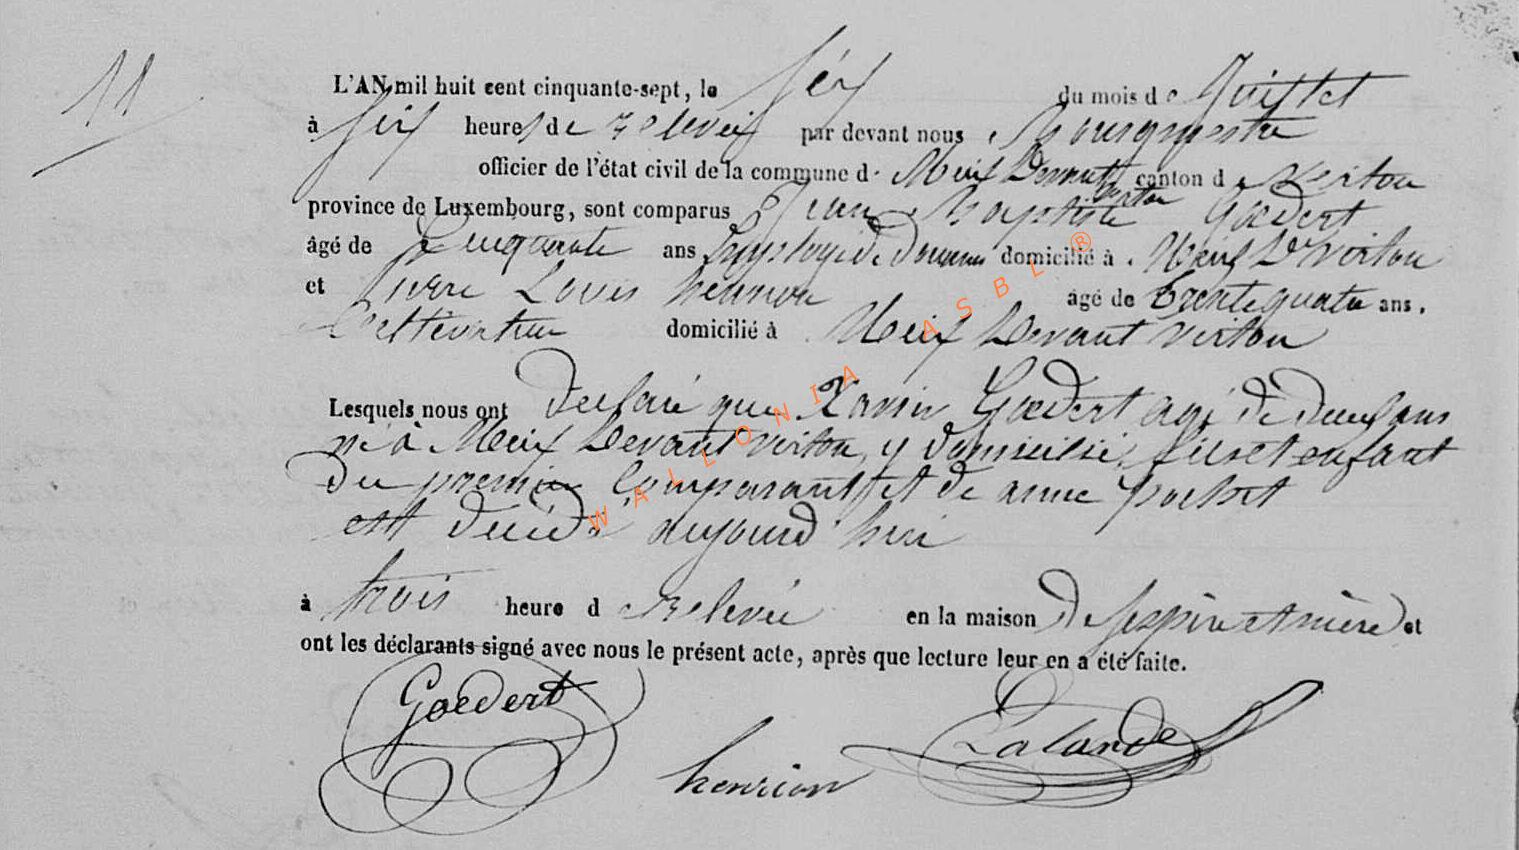 11
L'AN mil huit cent cinquante-sept, le six du mois de Juillet
à six heures de relevée par devant nous Bourgmestre
officier de l'état civil de la commune d. Meix Devant virton canton d Virton
province de Luxembourg, sont comparus Jean Baptiste Goedert
âgé de Cinquante ans Employé de douanes domicilié à Meix Dt Virton
et pierre Louis henrion âgé de trentequatre ans.
Cultivateur domicilié à Meix Devant virton
Lesquels nous ont declaré que Xavier Goedert agé de deux ans
né à Meix Devant virton, y domicilié, fils et enfant
du premier Comparant et de anne
est décédé aujourd'hui
à trois heure d relevée en la maison de ses père et mère et
ont les déclarants signé avec nous le présent acte, après que lecture leur en a été faite.
Goedert
henrion
Lalande
WALLONIA ASBL ®